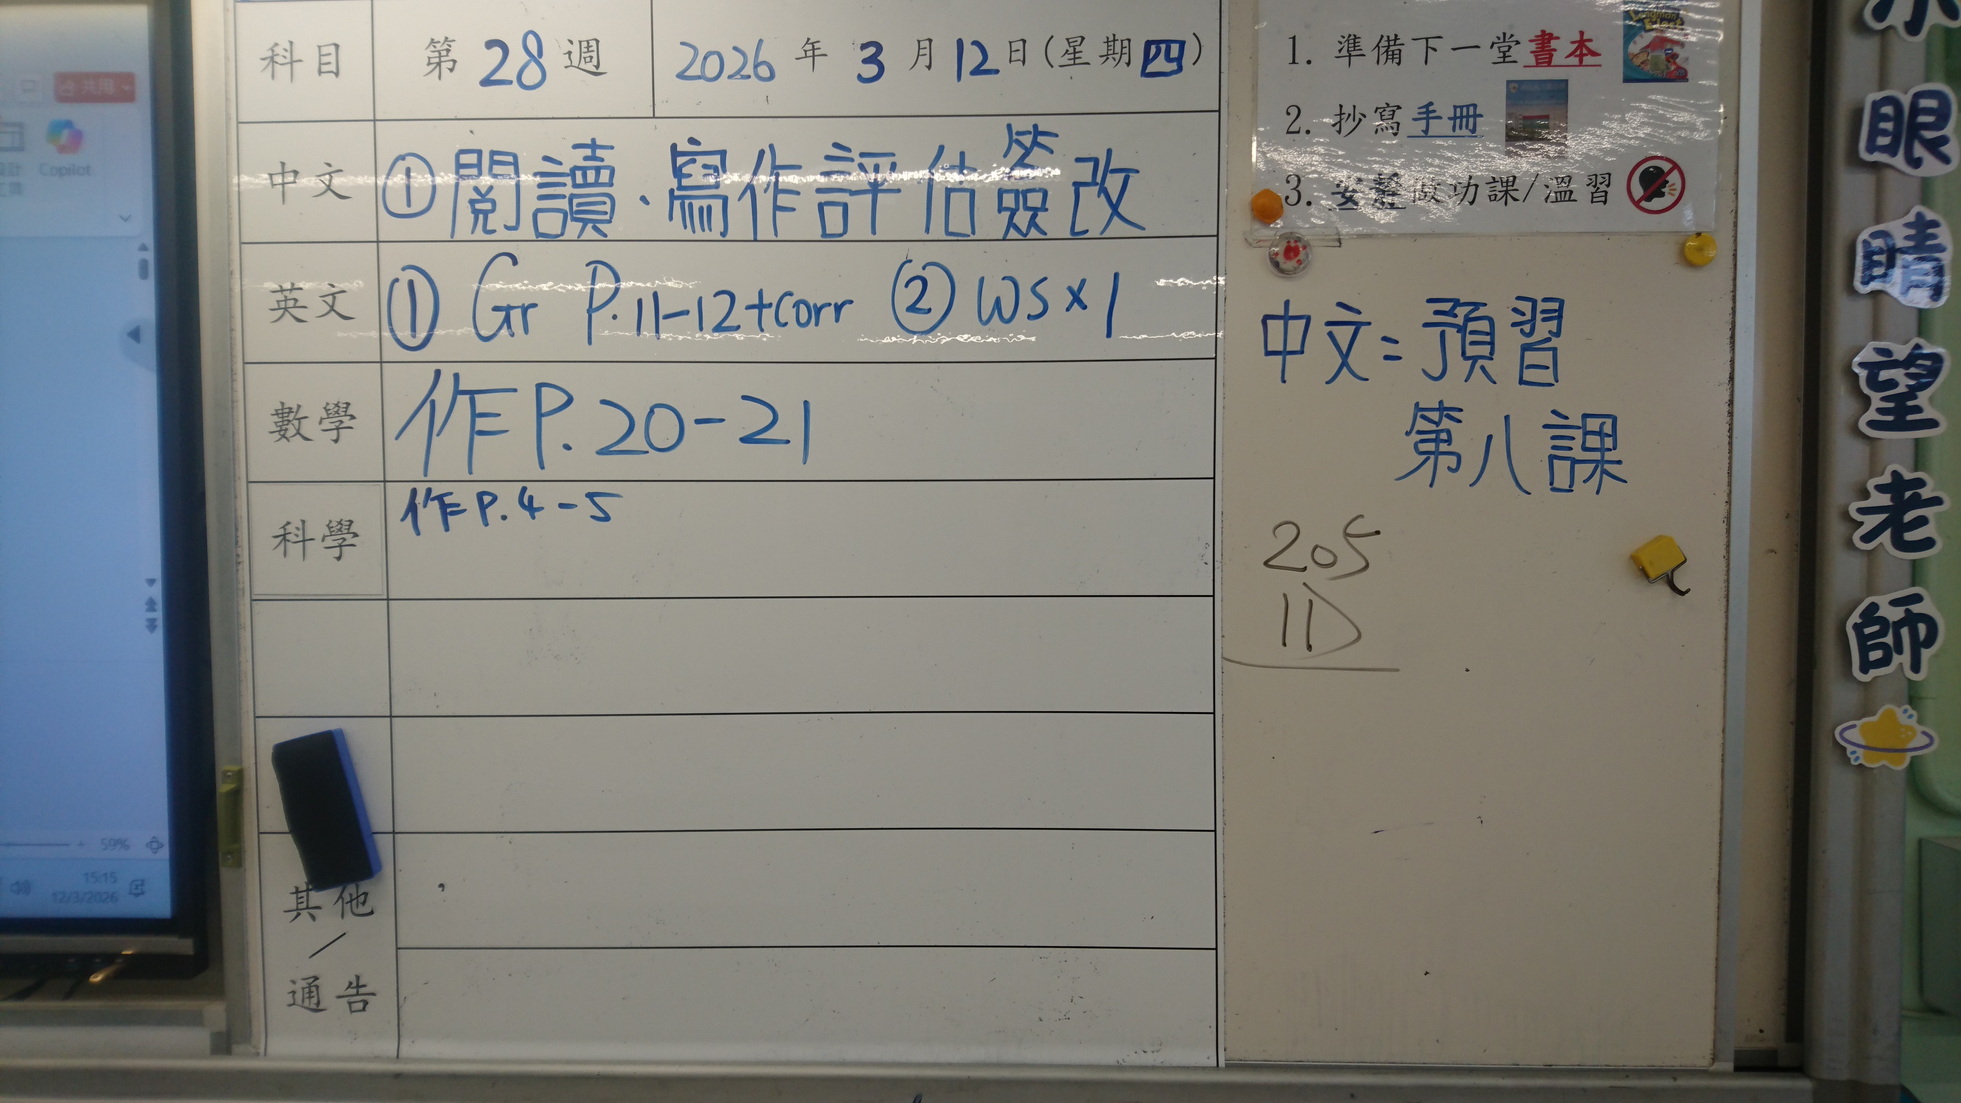 科目 第 28 週 2026 年 3 月 12 日(星期四)
中文 ①閱讀.寫作評估簽改
英文 ① Gr P.11-12+corr ② WS×1
數學 作P.20-21
科學 作P.4-5
其他
/
通告
1. 準備下一堂書本
2. 抄寫手冊
3. 安靜做功課/溫習
中文:預習
第八課
205
11D
眼睛望老師
共用
Copilot
59%
15:15
12/3/2026